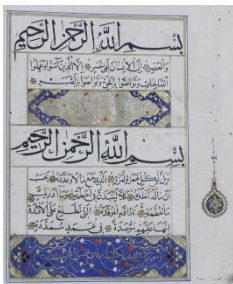 بسم الله الرحمن الرحيم
والعصر ان الانسان لفي خسر الا الذين آمنوا وعملوا
الصالحات وتواصوا بالحق وتواصوا بالصبر
بسم الله الرحمن الرحيم
ويل لكل همزة لمزة الذي جمع مالا وعدده يحسب
ان ماله اخلده كلا لينبذن في الحطمة وما ادراك
ما الحطمة نار الله الموقدة التي تطلع على الافئدة
انها عليهم موصدة في عمد ممددة